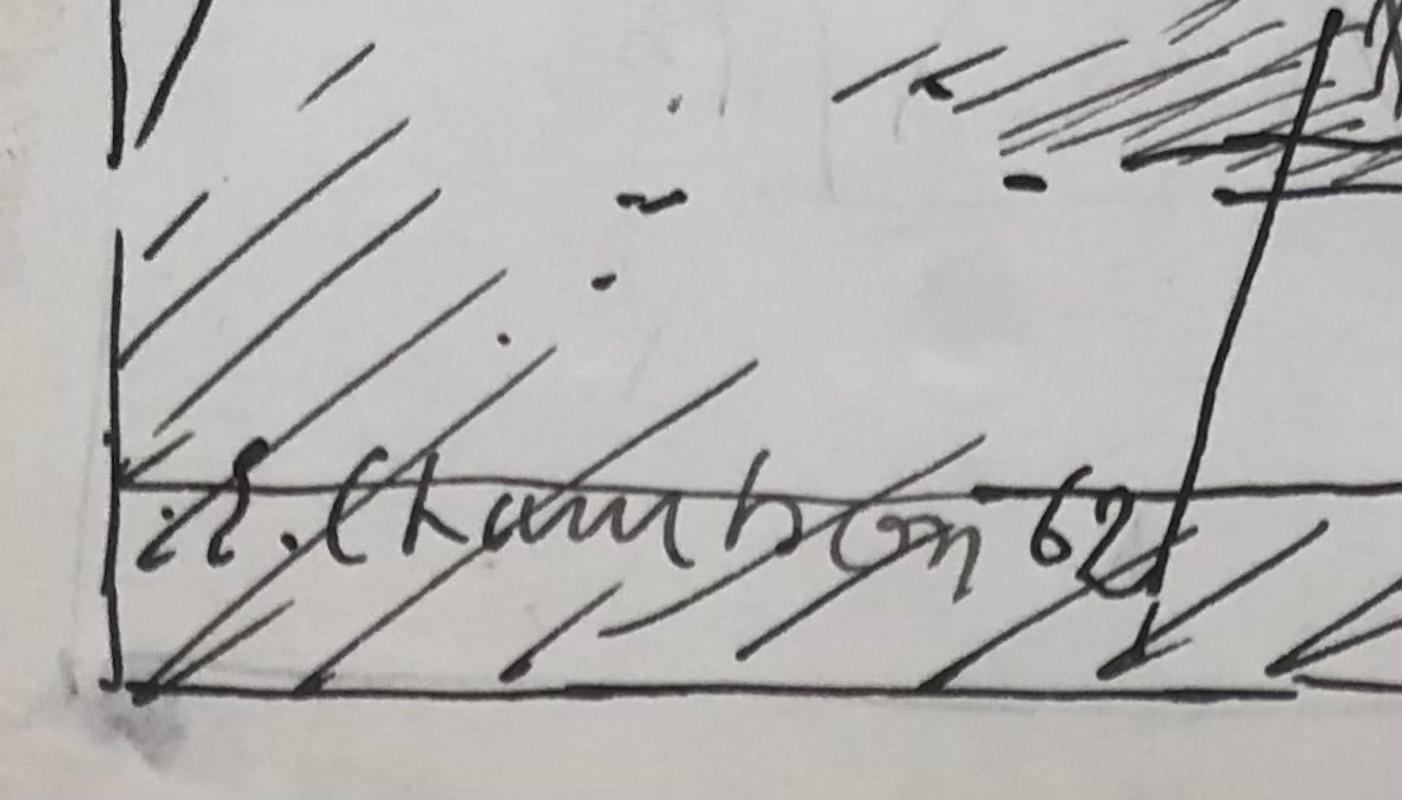 Chambon 62